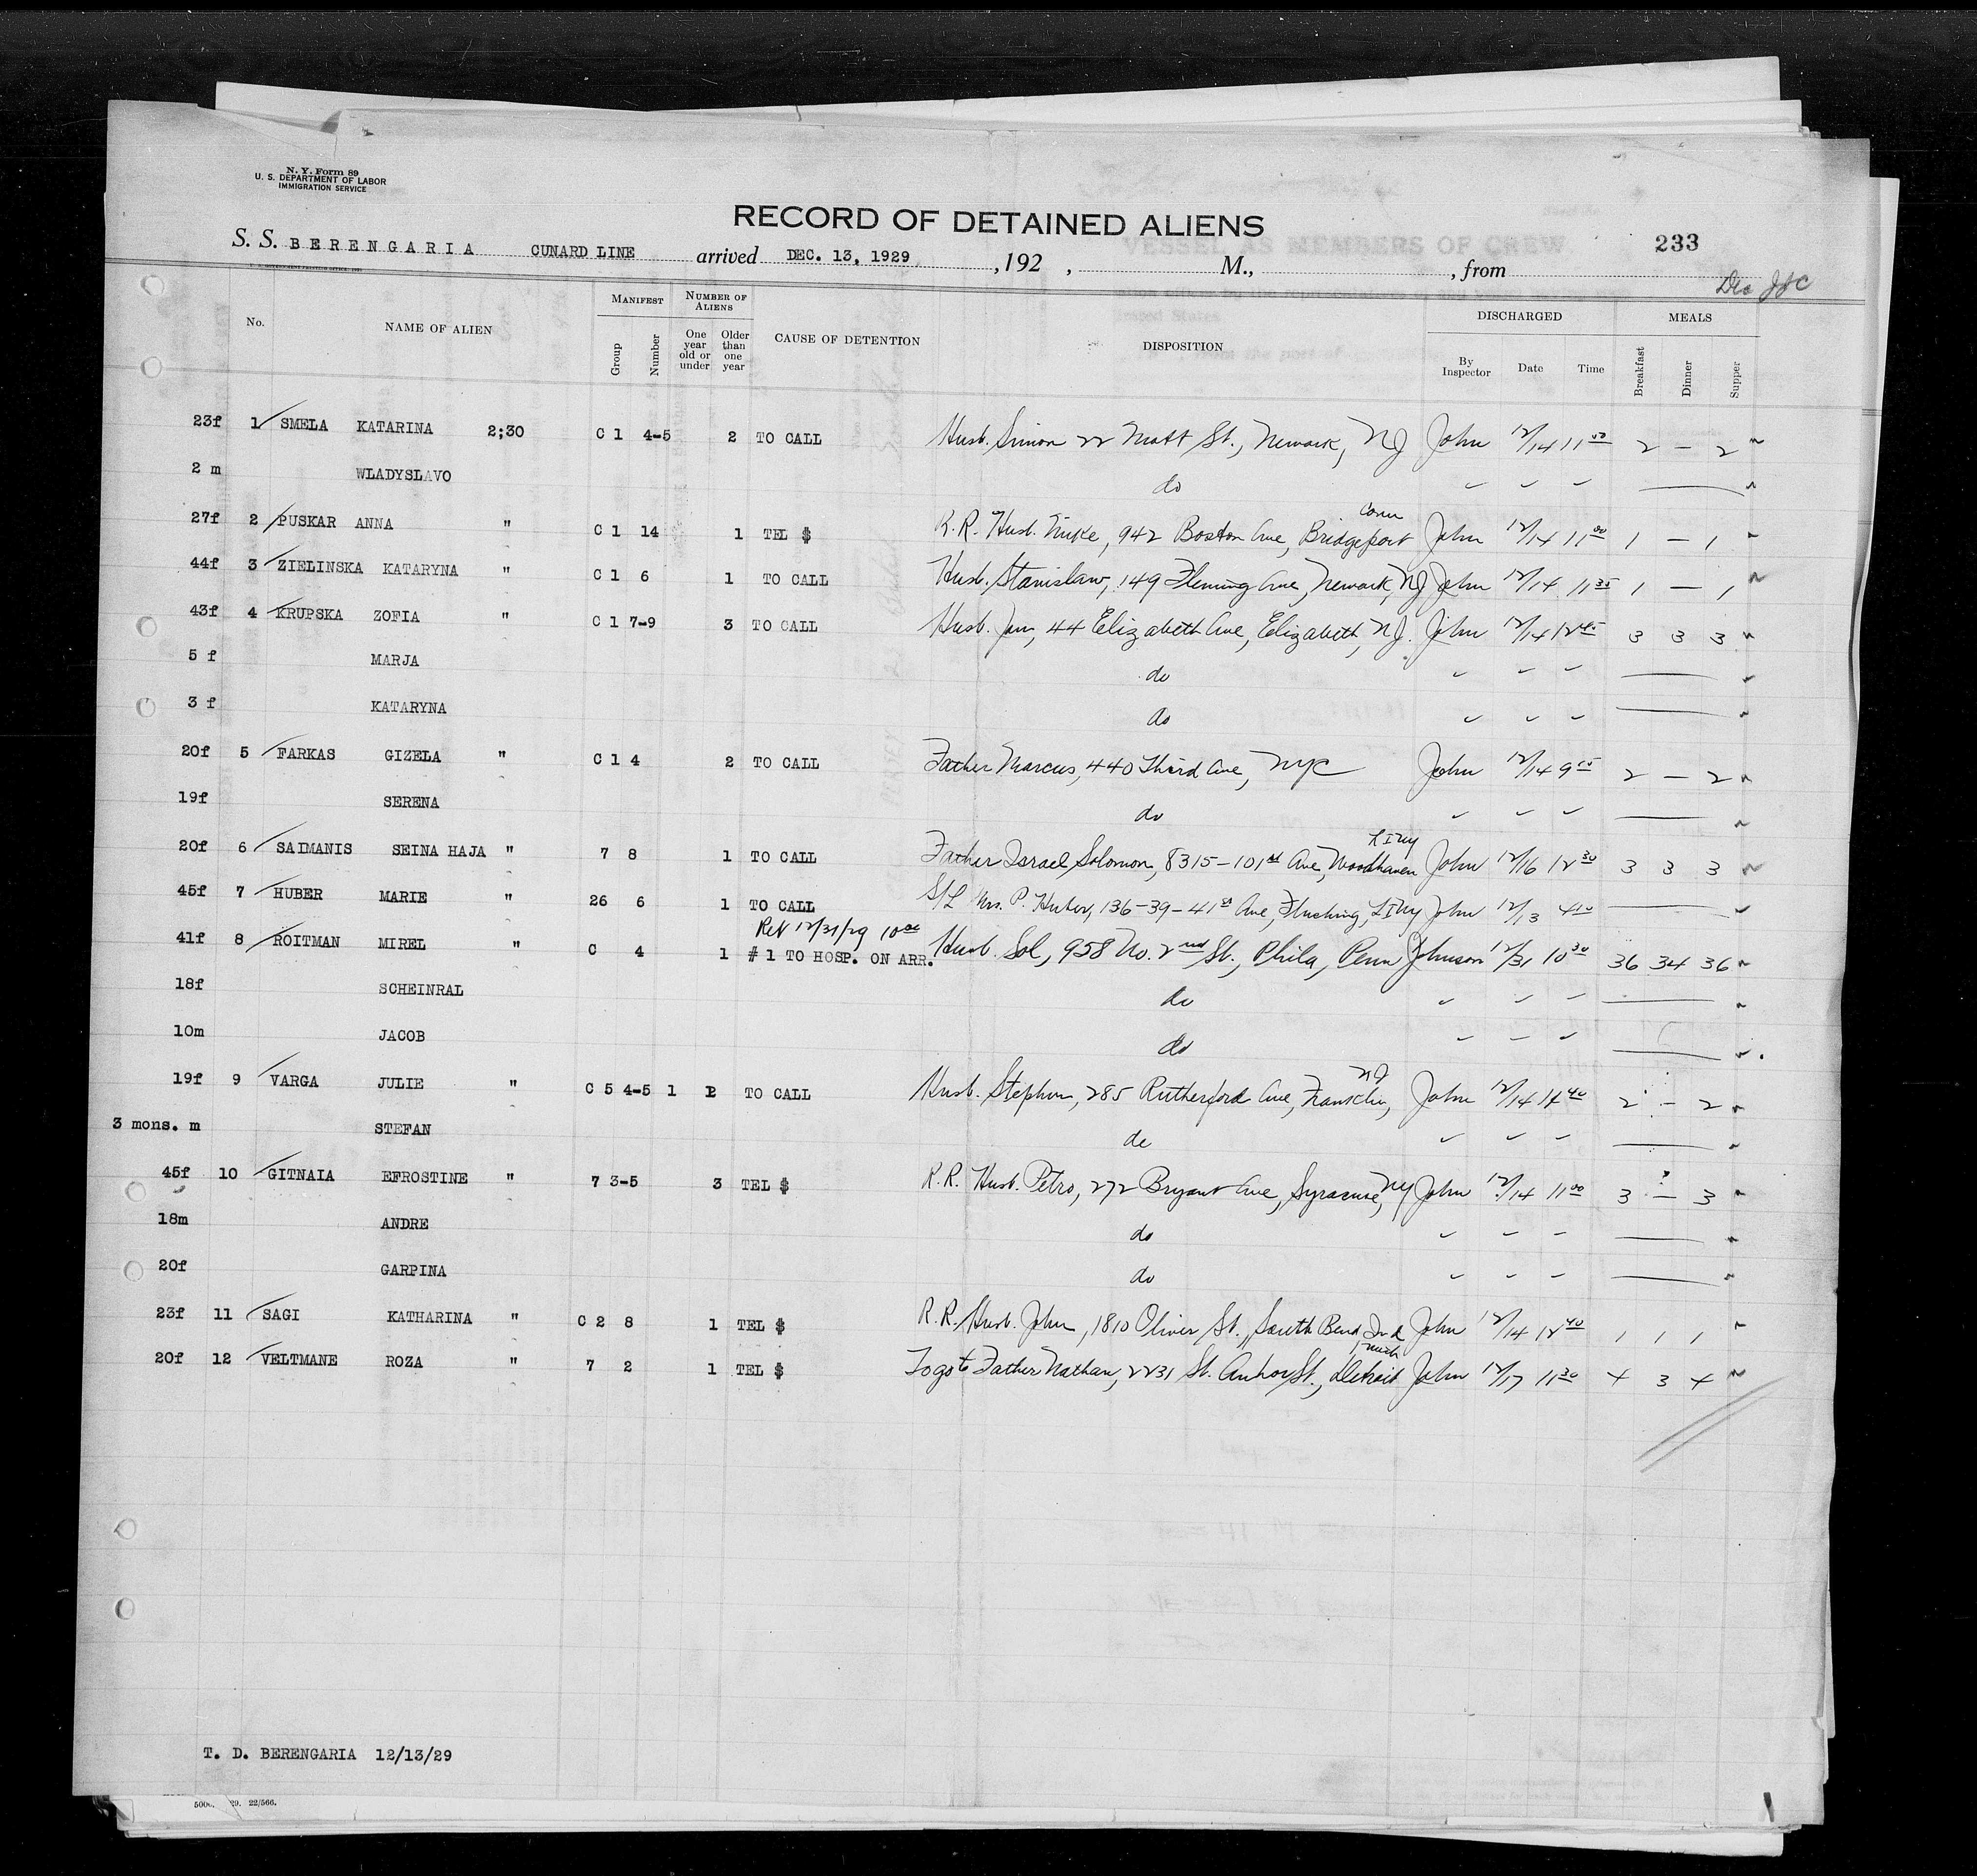 N. Y. Form 89
U. S. DEPARTMENT OF LABOR
IMMIGRATION SERVICE
RECORD OF DETAINED ALIENS
S. S. BERENGARIA CUNARD LINE arrived DEC. 13, 1929 , 192 , M., , from 233
Manifest Number of Aliens DISCHARGED MEALS
No. NAME OF ALIEN Group Number One year old or under Older than one year CAUSE OF DETENTION DISPOSITION By Inspector Date Time Breakfast Dinner Supper
23f 1 SMELA KATARINA 2;30 C 1 4-5 2 TO CALL Husb. Simon 22 Mott St., Newark, NJ John 12/14 11 00 2 — 2
2 m WLADYSLAVO do
27f 2 PUSKAR ANNA " C 1 14 1 TEL $ R.R. Husb. Mike, 942 Boston Ave, Bridgeport Conn John 12/14 11 00 1 — 1
44f 3 ZIELINSKA KATARYNA " C 1 6 1 TO CALL Husb. Stanislaw, 149 Fleming Ave, Newark, NJ John 12/14 11 35 1 — 1
43f 4 KRUPSKA ZOFIA " C 1 7-9 3 TO CALL Husb. Jan, 44 Elizabeth Ave, Elizabeth, NJ. John 12/14 12 45 3 3 3
5 f MARJA do
3 f KATARYNA do
20f 5 FARKAS GIZELA " C 1 4 2 TO CALL Father Marcus, 440 Third Ave, NYC John 12/14 9 55 2 — 2
19f SERENA do
20f 6 SAIMANIS SEINA HAJA " 7 8 1 TO CALL Father Israel Solomon, 8315-101st Ave, Woodhaven LINY John 12/16 12 30 3 3 3
45f 7 HUBER MARIE " 26 6 1 TO CALL S/L Mrs. P. Huber, 136-39-41st Ave, Flushing, LINY John 12/13 4 10
Ret 12/31/29 10 00
41f 8 ROITMAN MIREL " C 4 1 #1 TO HOSP. ON ARR. Husb. Sol, 958 No. 2nd St., Phila, Penn Johnson 12/31 10 30 36 34 36
18f SCHEINRAL do
10m JACOB do
19f 9 VARGA JULIE " C 5 4-5 1 1 TO CALL Husb. Stephen, 285 Rutherford Ave, Franklin, NJ John 12/14 11 40 2 — 2
3 mons. m STEFAN do
45f 10 GITNAIA EFROSTINE " 7 3-5 3 TEL $ R.R. Husb. Petro, 272 Bryant Ave, Syracuse, NY John 12/14 11 00 3 — 3
18m ANDRE do
20f GARPINA do
23f 11 SAGI KATHARINA " C 2 8 1 TEL $ R.R. Husb. John, 1810 Oliver St., South Bend, Ind John 12/14 12 40 1 1 1
20f 12 VELTMANE ROZA " 7 2 1 TEL $ To go to Father Nathan, 2231 St. St., Detroit Mich John 12/17 11 30 4 3 4
T. D. BERENGARIA 12/13/29
29. 22/566.